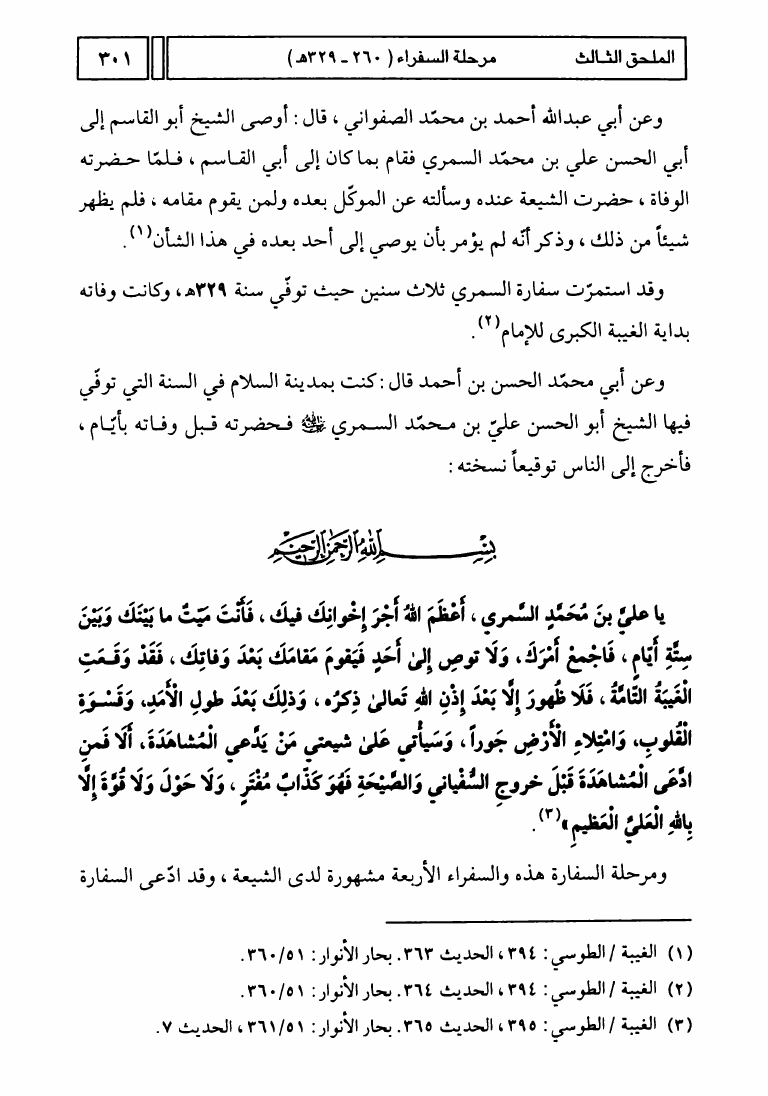 الملحق الثالث مرحلة السفراء ( ٢٦٠ ـ ٣٢٩هـ ) ٣٠١
وعن أبي عبدالله أحمد بن محمّد الصفواني ، قال : أوصى الشيخ أبو القاسم إلى
أبي الحسن علي بن محمّد السمري فقام بما كان إلى أبي القـاسم ، فـلمّا حـضرته
الوفاة ، حضرت الشيعة عنده وسألته عن الموكّل بعده ولمن يقوم مقامه ، فلم يظهر
شيئاً من ذلك ، وذكر أنّه لم يؤمر بأن يوصي إلى أحد بعده في هذا الشأن(١) .
وقد استمرّت سفارة السمري ثلاث سنين حيث توفّي سنة ٣٢٩هـ، وكانت وفاته
بداية الغيبة الكبرى للإمام(٢) .
وعن أبي محمّد الحسن بن أحمد قال : كنت بمدينة السلام في السنة التي توفّي
فيها الشيخ أبو الحسن عليّ بن مـحمّد السـمري فـحضرته قـبل وفـاته بأيّـام ،
فأخرج إلى الناس توقيعاً نسخته :
بِسْمِ اللهِ الرَّحْمٰنِ الرَّحِيمِ
يا عليَّ بنَ مُحَمَّدٍ السَّمري ، أَعْظَمَ اللهُ أَجْرَ إِخْوانِكَ فيكَ ، فَأَنْتَ مَيّتٌ ما بَيْنَكَ وَبَيْنَ
سِتَّةِ أَيّامٍ ، فَاجْمعْ أَمْرَكَ ، وَلَا توصِ إِلىٰ أَحَدٍ فَيَقومَ مَقامَكَ بَعْدَ وَفاتِكَ ، فَقَدْ وَقَـعَتِ
الْغَيبَةُ التّامَّةُ ، فَلَا ظُهورَ إِلَّا بَعْدَ إِذْنِ اللهِ تَعالىٰ ذِكرُه ، وَذلِكَ بَعْدَ طولِ الْأَمَدِ، وَقَسْوَةِ
الْقُلوبِ، وَامْتِلاءِ الْأَرْضِ جَوراً ، وَسَيَأْتي عَلىٰ شيعتي مَنْ يَدَّعي الْمُشاهَدَةَ ، أَلَا فَمنِ
ادَّعَى الْمُشاهَدَةَ قَبْلَ خروجِ السُّفْياني وَالصَّيْحَةِ فَهُوَ كَذّابٌ مُفْتَرٍ ، وَلَا حَوْلَ وَلَا قُوَّةَ إِلَّا
بِاللهِ الْعَليِّ الْعَظيمِ»(٣) .
ومرحلة السفارة هذه والسفراء الأربعة مشهورة لدى الشيعة ، وقد ادّعى السفارة
(١) الغيبة / الطوسي : ٣٩٤ ، الحديث ٣٦٣ . بحار الأنوار : ٥١ / ٣٦٠ .
(٢) الغيبة / الطوسي : ٣٩٤ ، الحديث ٣٦٤ . بحار الأنوار : ٥١ / ٣٦٠ .
(٣) الغيبة / الطوسي : ٣٩٥ ، الحديث ٣٦٥ . بحار الأنوار : ٥١ / ٣٦١ ، الحديث ٧ .